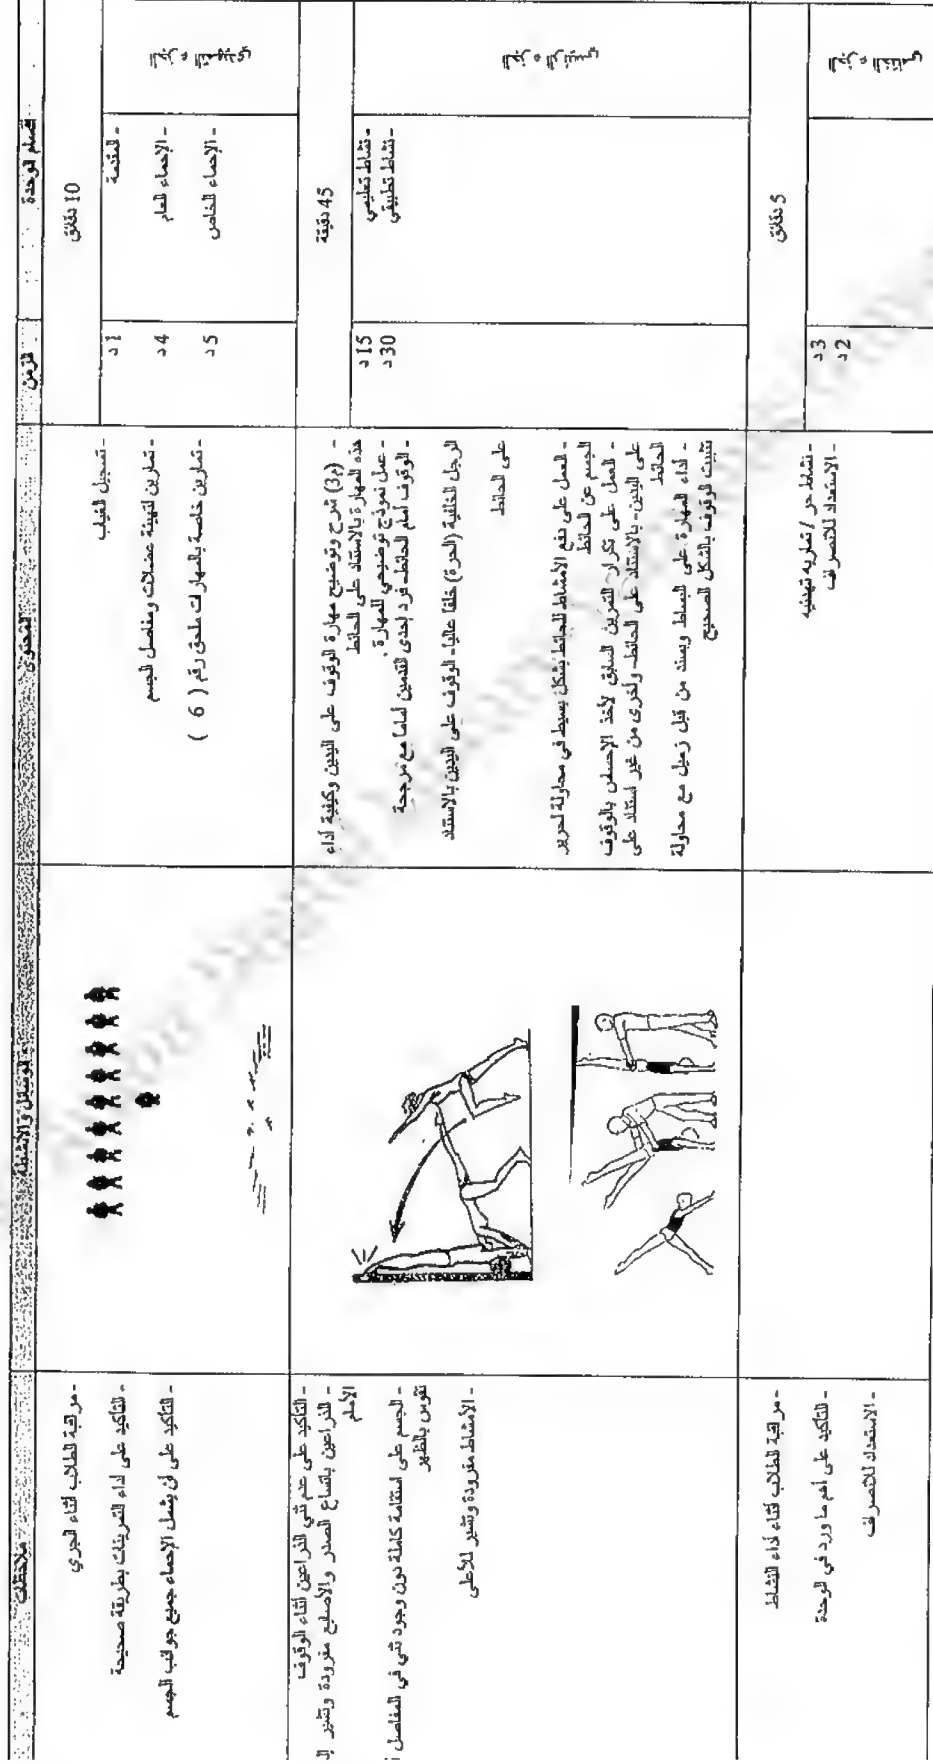 أقسام الوحدة
الزمن
المحتوى
الوسائل والأنشطة
ملاحظات
10 دقائق
- المقدمة
- الإحماء العام
- الإحماء الخاص
1 د
4 د
5 د
- تسجيل الغياب
- تمارين لتهيئة عضلات ومفاصل الجسم
- تمارين خاصة بالمهارات ملحق رقم ( 6 )
- مراقبة الطلاب أثناء الجري
- التأكيد على أداء التمرينات بطريقة صحيحة
- التأكيد على أن يشمل الإحماء جميع جوانب الجسم
45 دقيقة
- نشاط تعليمي
- نشاط تطبيقي
15 د
30 د
- (م3) شرح وتوضيح مهارة الوقوف على اليدين وكيفية أداء
هذه المهارة بالاستناد على الحائط
- عمل نموذج توضيحي للمهارة .
- الوقوف أمام الحائط- فرد إحدى القدمين أماما مع مرجحة
الرجل الخلفية (الحرة) خلفا عاليا- الوقوف على اليدين بالاستناد
على الحائط
- العمل على دفع الأمشاط للحائط بشكل بسيط في محاولة لتحرير
الجسم عن الحائط
- العمل على تكرار التمرين السابق لأخذ الإحساس بالوقوف
على اليدين- بالاستناد على الحائط- وأخرى من غير استناد على
الحائط
- أداء المهارة على البساط وبسند من قبل زميل مع محاولة
تثبيت الوقوف بالشكل الصحيح
- التأكيد على عدم ثني الذراعين أثناء الوقوف
- الذراعين باتساع الصدر والأصابع مفرودة وتشير
الأمام
- الجسم على استقامة كاملة دون وجود ثني في المفاصل
تقوس بالظهر
- الأمشاط مفرودة وتشير للأعلى
5 دقائق
3 د
2 د
- نشاط حر / تمارين تهدئيه
- الاستعداد للانصراف
- مراقبة الطلاب أثناء أداء النشاط
- التأكيد على أهم ما ورد في الوحدة
- الاستعداد للانصراف